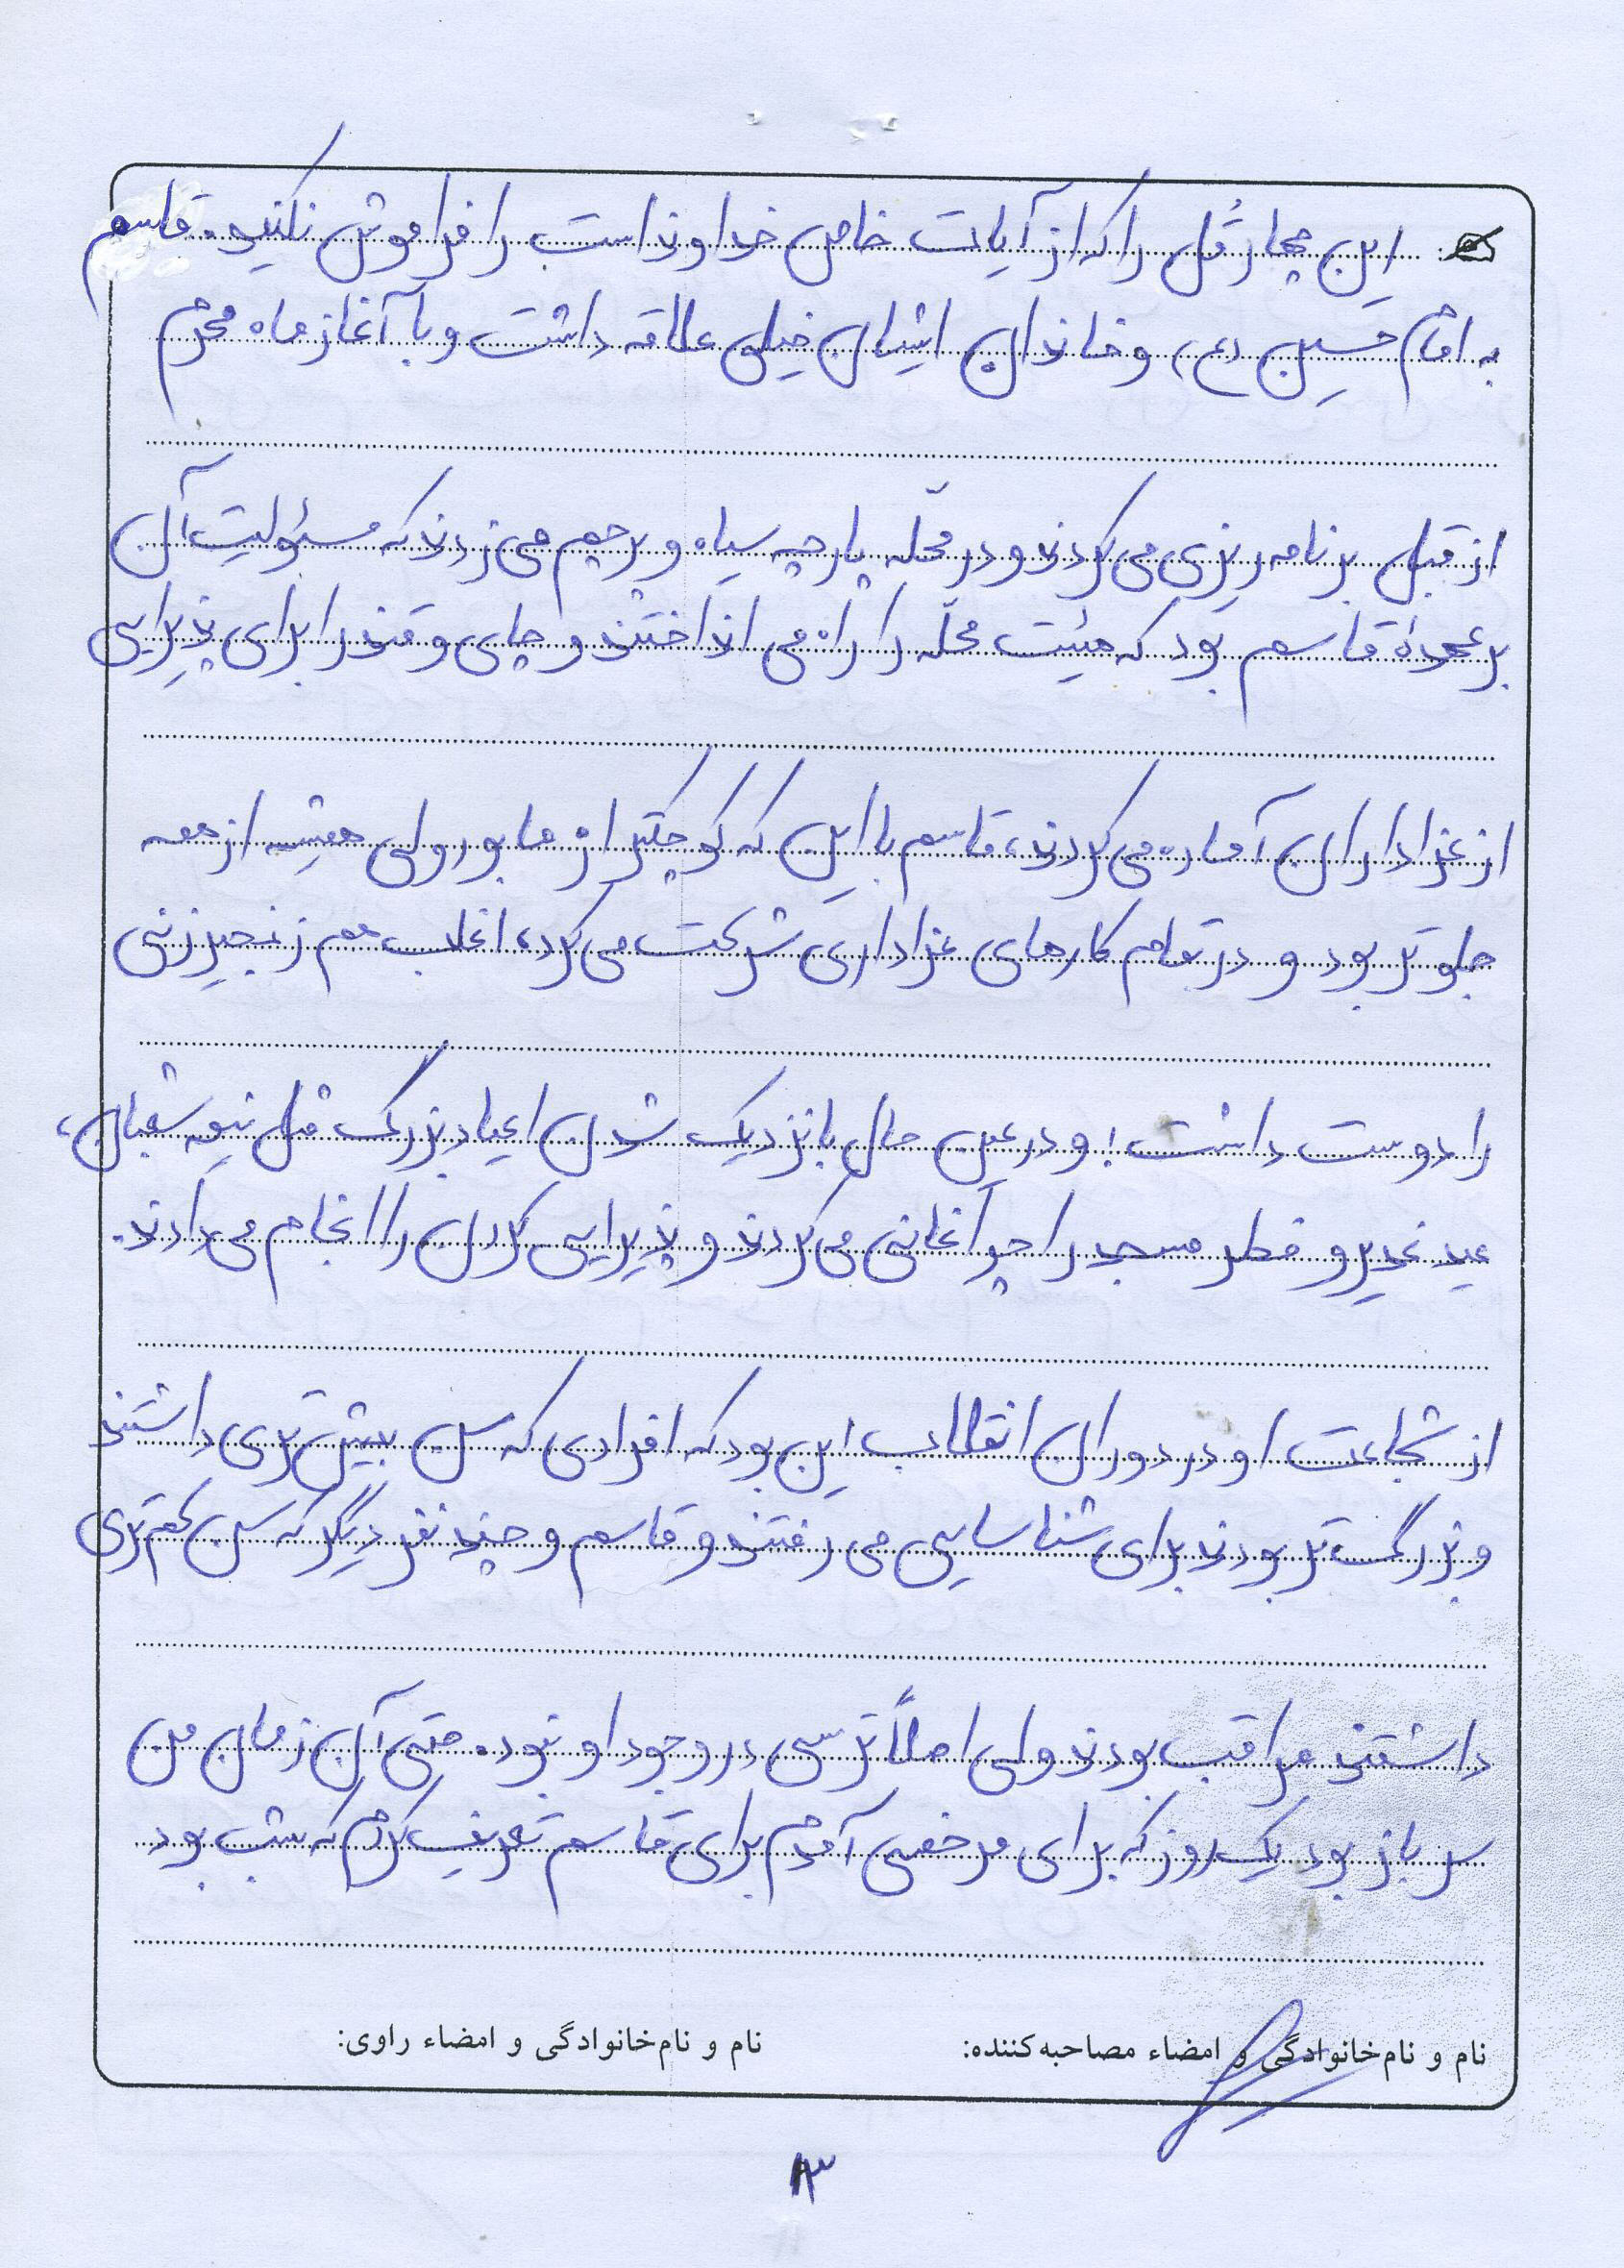 این چهار قُل را که از آیات خاص خداوند است را فراموش نکنید. قاسم
به امام حسین (ع) و خاندان ایشان خیلی علاقه داشت و با آغاز ماه محرم
از قبل برنامه ریزی می کردند و در محلّه پارچه سیاه و پرچم می زدند که مسئولیت آن
بر عهدهٔ قاسم بود که هیئت محلّه را راه می انداختند و چای و قند را برای پذیرایی
از عزاداران آماده می کردند، قاسم با این که کوچکتر از ما بود ولی همیشه از همه
جلوتر بود و در تمام کارهای عزاداری شرکت می کرد، اغلب هم زنجیرزنی
را دوست داشت! و در عین حال با نزدیک شدن اعیاد بزرگ مثل نیمه شعبان،
عید غدیر و فطر مسجد را چراغانی می کردند و پذیرایی کردن را انجام می دادند.
از شجاعت او در دوران انقلاب این بود که افرادی که سن بیش تری داشتند
و بزرگ تر بودند برای شناسایی می رفتند و قاسم و چند نفر دیگر که سن کم تری
داشتند مراقب بودند ولی اصلاً ترسی در وجود او نبود. حتی آن زمان من
سرباز بود یک روز که برای مرخصی آمدم برای قاسم تعریف کردم که شب بود
نام و نام‌خانوادگی و امضاء مصاحبه‌کننده: نام و نام‌خانوادگی و امضاء راوی: